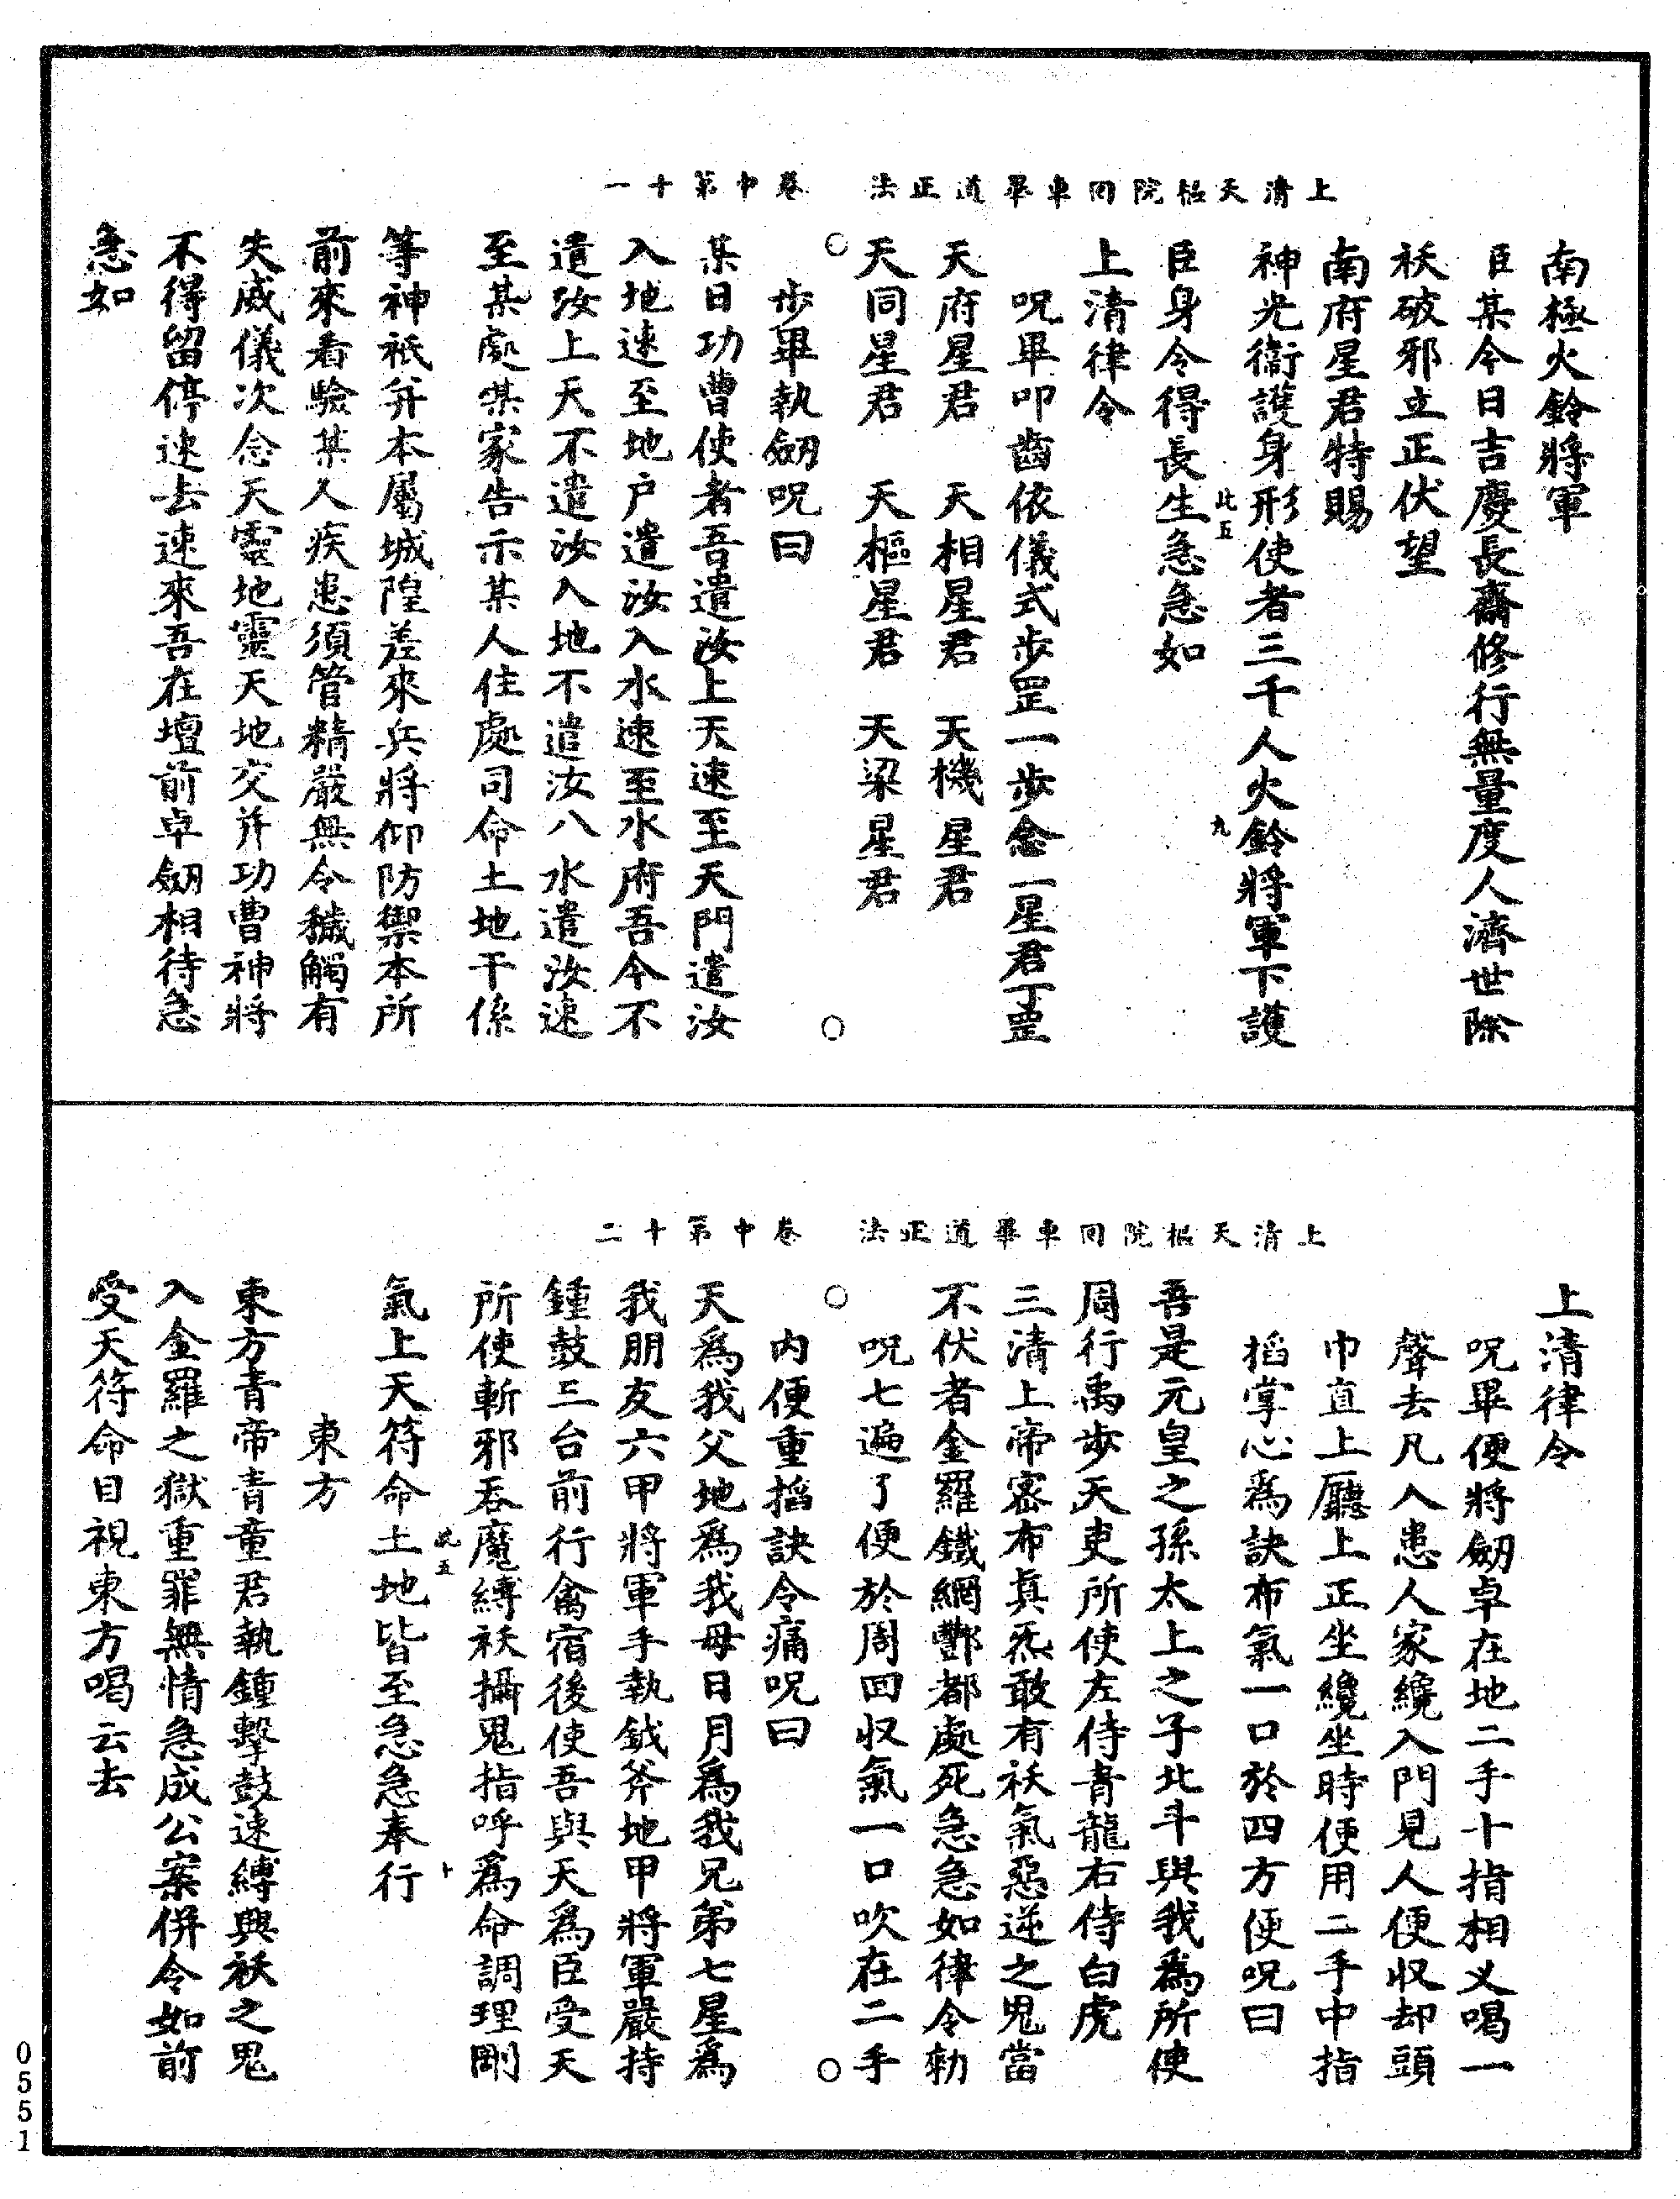 上清天樞院回車畢道正法　卷中第十一
南極火鈴將軍
臣某今日吉慶長齋修行無量度人濟世除
袄破邪立正伏望
南府星君特賜
神光衞護身形使者三千人火鈴將軍下護
此五　九
臣身令得長生急急如
上清律令
呪畢叩齒依儀式步罡一步念一星君丁罡
天府星君　天相星君　天機星君
天同星君　天樞星君　天梁星君
步畢執劒呪曰
某日功曹使者吾遣汝上天速至天門遣汝
入地速至地户遣汝入水速至水府吾今不
遣汝上天不遣汝入地不遣汝八水遣汝速
至某處某家告示某人住處司命土地干係
等神祇并本屬城隍差來兵將仰防禦本所
前來看驗某人疾患須管精嚴無令穢觸有
失威儀次念天靈地靈天地交并功曹神將
不得留停速去速來吾在壇前卓劒相待急
急如
上清天樞院回車畢道正法　卷中第十二
上清律令
呪畢便將劒卓在地二手十指相义喝一
聲去凡入患人家纔入門見人便収却頭
巾直上廳上正坐纔坐時便用二手中指
掐掌心爲訣布氣一口於四方便呪曰
吾是元皇之孫太上之子北斗與我爲所使
周行禹步天吏所使左侍青龍右侍白虎
三清上帝密布眞炁敢有袄氣惡逆之鬼當
不伏者金羅鐵網酆都處死急急如律令勑
呪七遍了便於周回収氣一口吹在二手
内便重掐訣令痛呪曰
天爲我父地爲我母日月爲我兄弟七星爲
我朋友六甲將軍手執鉞斧地甲將軍嚴持
鍾鼓三台前行禽宿後使吾與天爲臣受天
所使斬邪吞魔縛袄攝鬼指呼爲命調理剛
此五　十
氣上天符命土地皆至急急奉行
東方
東方青帝青童君執鍾擊鼓速縛興袄之鬼
入金羅之獄重罪無情急成公案併令如前
受天符命目視東方喝云去
0551